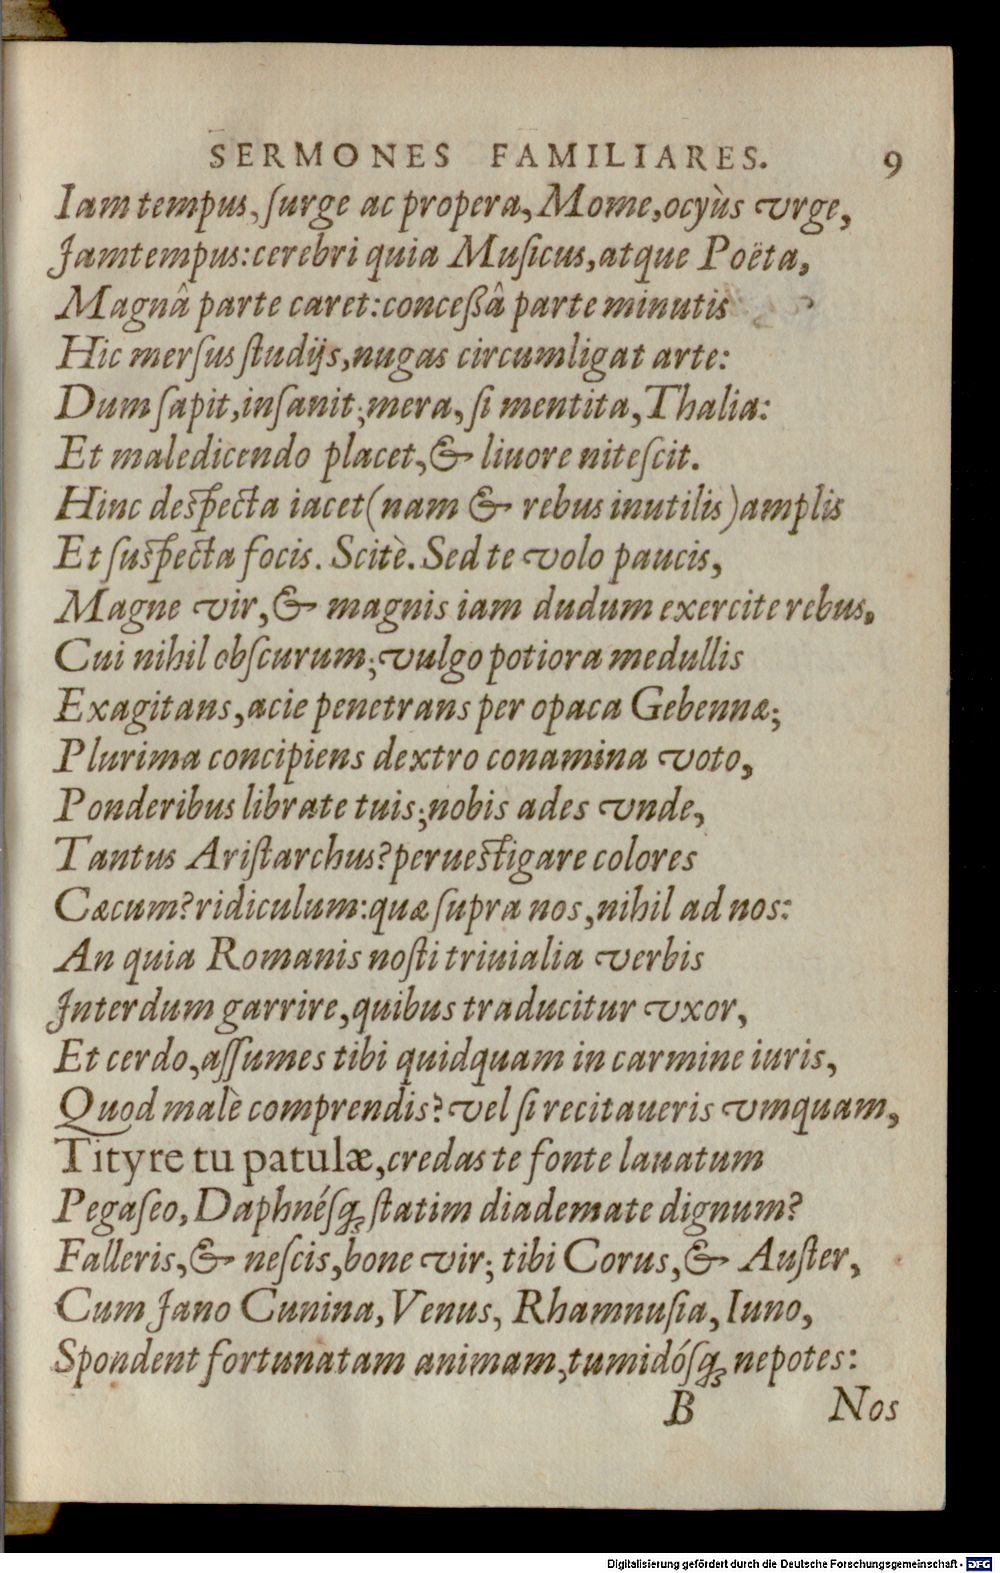 SERMONES FAMILIARES. 9
Iam tempus, ſurge ac propera, Mome, ocyùs vrge,
Jam tempus: cerebri quia Muſicus, atque Poëta,
Magnâ parte caret: conceßâ parte minutis
Hic merſus ſtudijs, nugas circumligat arte:
Dum ſapit, inſanit; mera, ſi mentita, Thalia:
Et maledicendo placet, & liuore niteſcit.
Hinc deſpecta iacet (nam & rebus inutilis) amplis
Et ſuſpecta focis. Scitè. Sed te volo paucis,
Magne vir, & magnis iam dudum exercite rebus.
Cui nihil obſcurum; vulgo potiora medullis
Exagitans, acie penetrans per opaca Gebennæ;
Plurima concipiens dextro conamina voto,
Ponderibus librate tuis; nobis ades vnde,
Tantus Ariſtarchus? perueſtigare colores
Cæcum? ridiculum: quæ ſupra nos, nihil ad nos:
An quia Romanis noſti triuialia verbis
Jnterdum garrire, quibus traducitur vxor,
Et cerdo, aſſumes tibi quidquam in carmine iuris,
Quod malè comprendis? vel ſi recitaueris vmquam,
Tityre tu patulæ, credas te fonte lauatum
Pegaſeo, Daphnéſq; ſtatim diademate dignum?
Falleris, & neſcis, bone vir; tibi Corus, & Auſter,
Cum Jano Cunina, Venus, Rhamnuſia, Iuno,
Spondent fortunatam animam, tumidóſq; nepotes:
B Nos
Digitalisierung gefördert durch die Deutsche Forschungsgemeinschaft - DFG